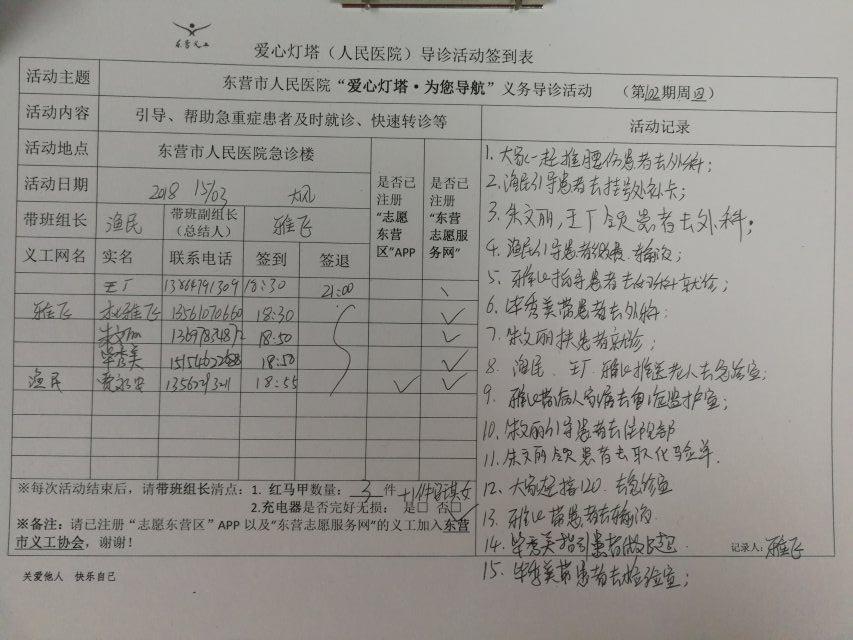 东营义工
爱心灯塔（人民医院）导诊活动签到表
活动主题 东营市人民医院“爱心灯塔·为您导航”义务导诊活动 （第102期周四）
活动内容 引导、帮助急重症患者及时就诊、快速转诊等
活动地点 东营市人民医院急诊楼
活动日期 2018 15/03
带班组长 渔民 带班副组长（总结人） 雅飞
是否已注册“志愿东营区”APP
是否已注册“东营志愿服务网”
义工网名 实名 联系电话 签到 签退
王丁 18:30 21:00
雅飞 雅飞 13561070660 18:30 ✓
18:50 ✓
毕秀美 18:50 ✓
渔民 18:55 ✓ ✓
※每次活动结束后，请带班组长清点：1. 红马甲数量： 3 件
2.充电器是否完好无损： 是□ 否□
※备注：请已注册“志愿东营区”APP 以及“东营志愿服务网”的义工加入东营
市义工协会，谢谢！
关爱他人 快乐自己
活动记录
1. 大家一起推腰伤患者去外科；
2. 渔民引导患者去挂号处补卡；
3. 朱文丽，王丁领患者去外科；
4. 渔民引导患者缴费、输液；
5. 雅飞指导患者去科就诊；
6. 毕秀美带患者去外科；
7. 朱文丽扶患者就诊；
8. 渔民、王丁、雅飞推送老人去急诊室；
9. 雅飞带病人家属去重症监护室；
10. 朱文丽引导患者去住院部
11. 朱文丽领患者去取化验单.
12. 大家起接120 去急诊室
13. 雅飞带患者去输液
14. 毕秀美指引患者做B超
15. 毕秀美带患者去检验室；
记录人：雅飞